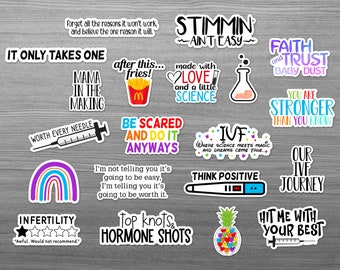 Forget all the reasons it won't work,
and believe the one reason it will.
STIMMIN'
AIN'T EASY
IT ONLY TAKES ONE
after this...
fries!
made with
LOVE
and a little
SCIENCE
FAITH
and TRUST
BABY DUST
MAMA
IN THE
MAKING
YOU ARE
STRONGER
THAN YOU KNOW
WORTH EVERY NEEDLE
BE SCARED
AND DO IT
ANYWAYS
IVF
WHERE SCIENCE MEETS MAGIC
AND DREAMS COME TRUE
OUR
IVF
JOURNEY
I'm not telling you it's
going to be easy,
I'm telling you it's
going to be worth it.
THINK POSITIVE
INFERTILITY
"Awful. Would not recommend."
top knots &
HORMONE SHOTS
HIT ME WITH
YOUR BEST